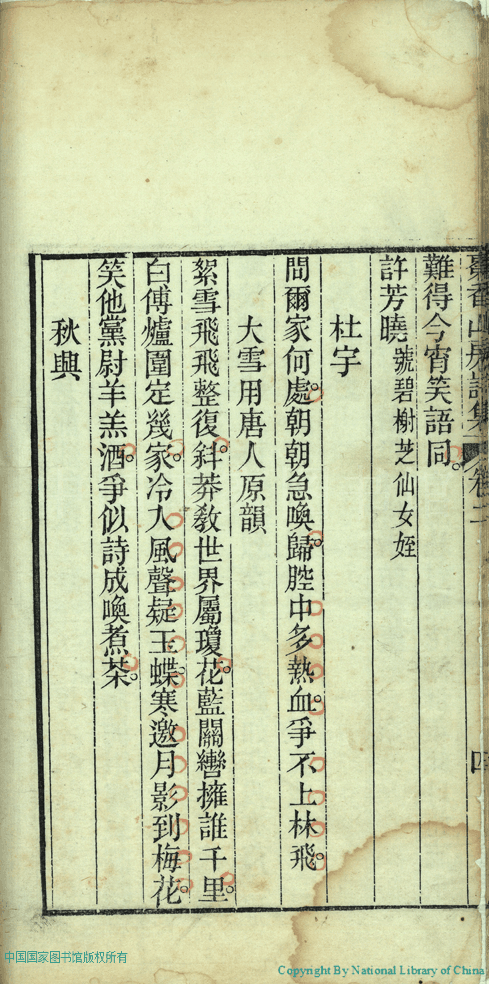 難得今宵笑語同。
許芳曉號碧榭芝仙女姪
杜宇
問爾家何處。朝朝急喚歸。腔中多熱血。爭不上林飛。
大雪用唐人原韻
絮雪飛飛整復斜。莽教世界屬瓊花。藍關轡擁誰千里。
白傅爐圍定幾家。冷入風聲疑玉蝶。寒邀月影到梅花。
笑他黨尉羊羔酒。爭似詩成喚煮茶。
秋興
四
中国国家图书馆版权所有
Copyright By National Library of China